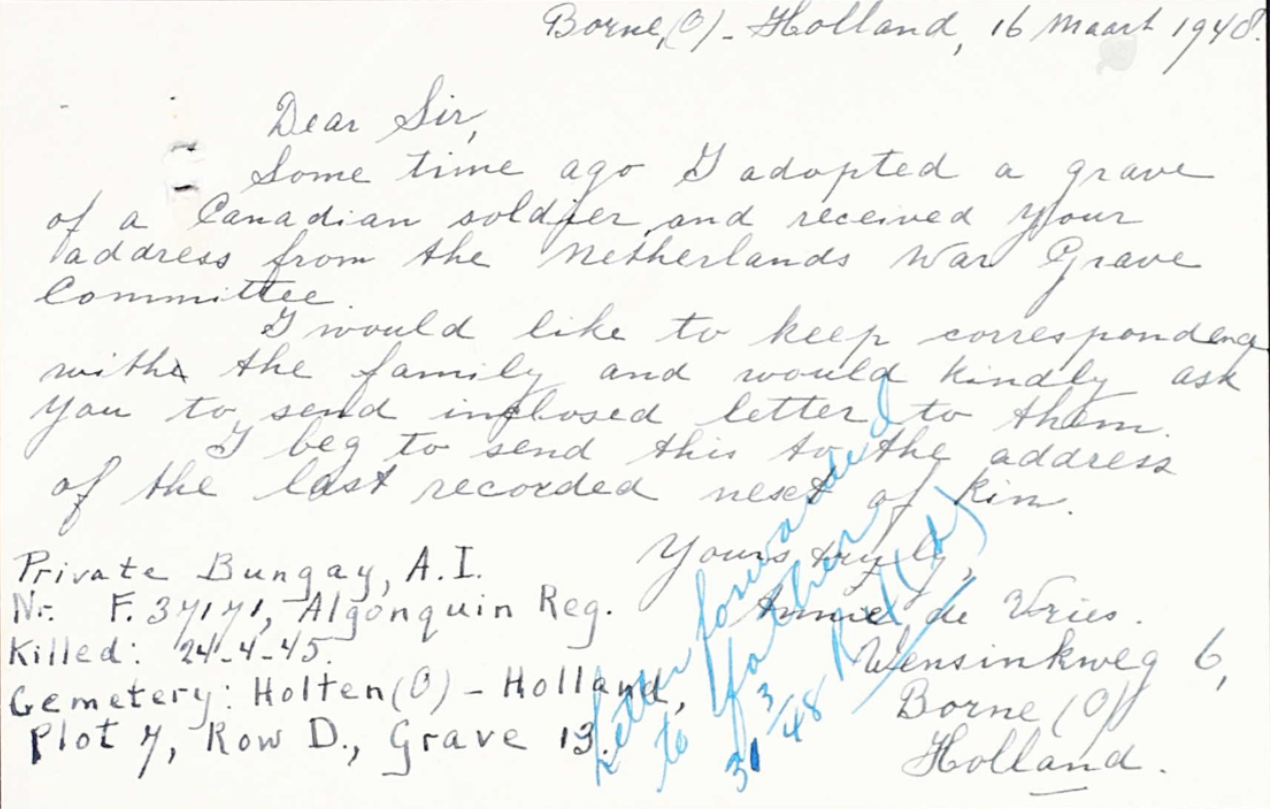 Borne, (O) - Holland, 16 Maart 1948.
Dear Sir,
Some time ago I adopted a grave
of a Canadian soldier, and received your
address from the Netherlands War Grave
Committee.
I would like to keep correspondence
withe the family and would kindly ask
you to send inclosed letter to them.
I beg to send this to the address
of the last recorded next of kin.
Yours truly,
Annie de Vries.
Wensinkweg 6,
Borne (O)
Holland.
Private Bungay, A.I.
Nr. F. 37171, Algonquin Reg.
Killed: 24-4-45.
Cemetery: Holten (O) - Holland,
Plot 7, Row D., Grave 13.
Letter forwarded
to father
31/3/48